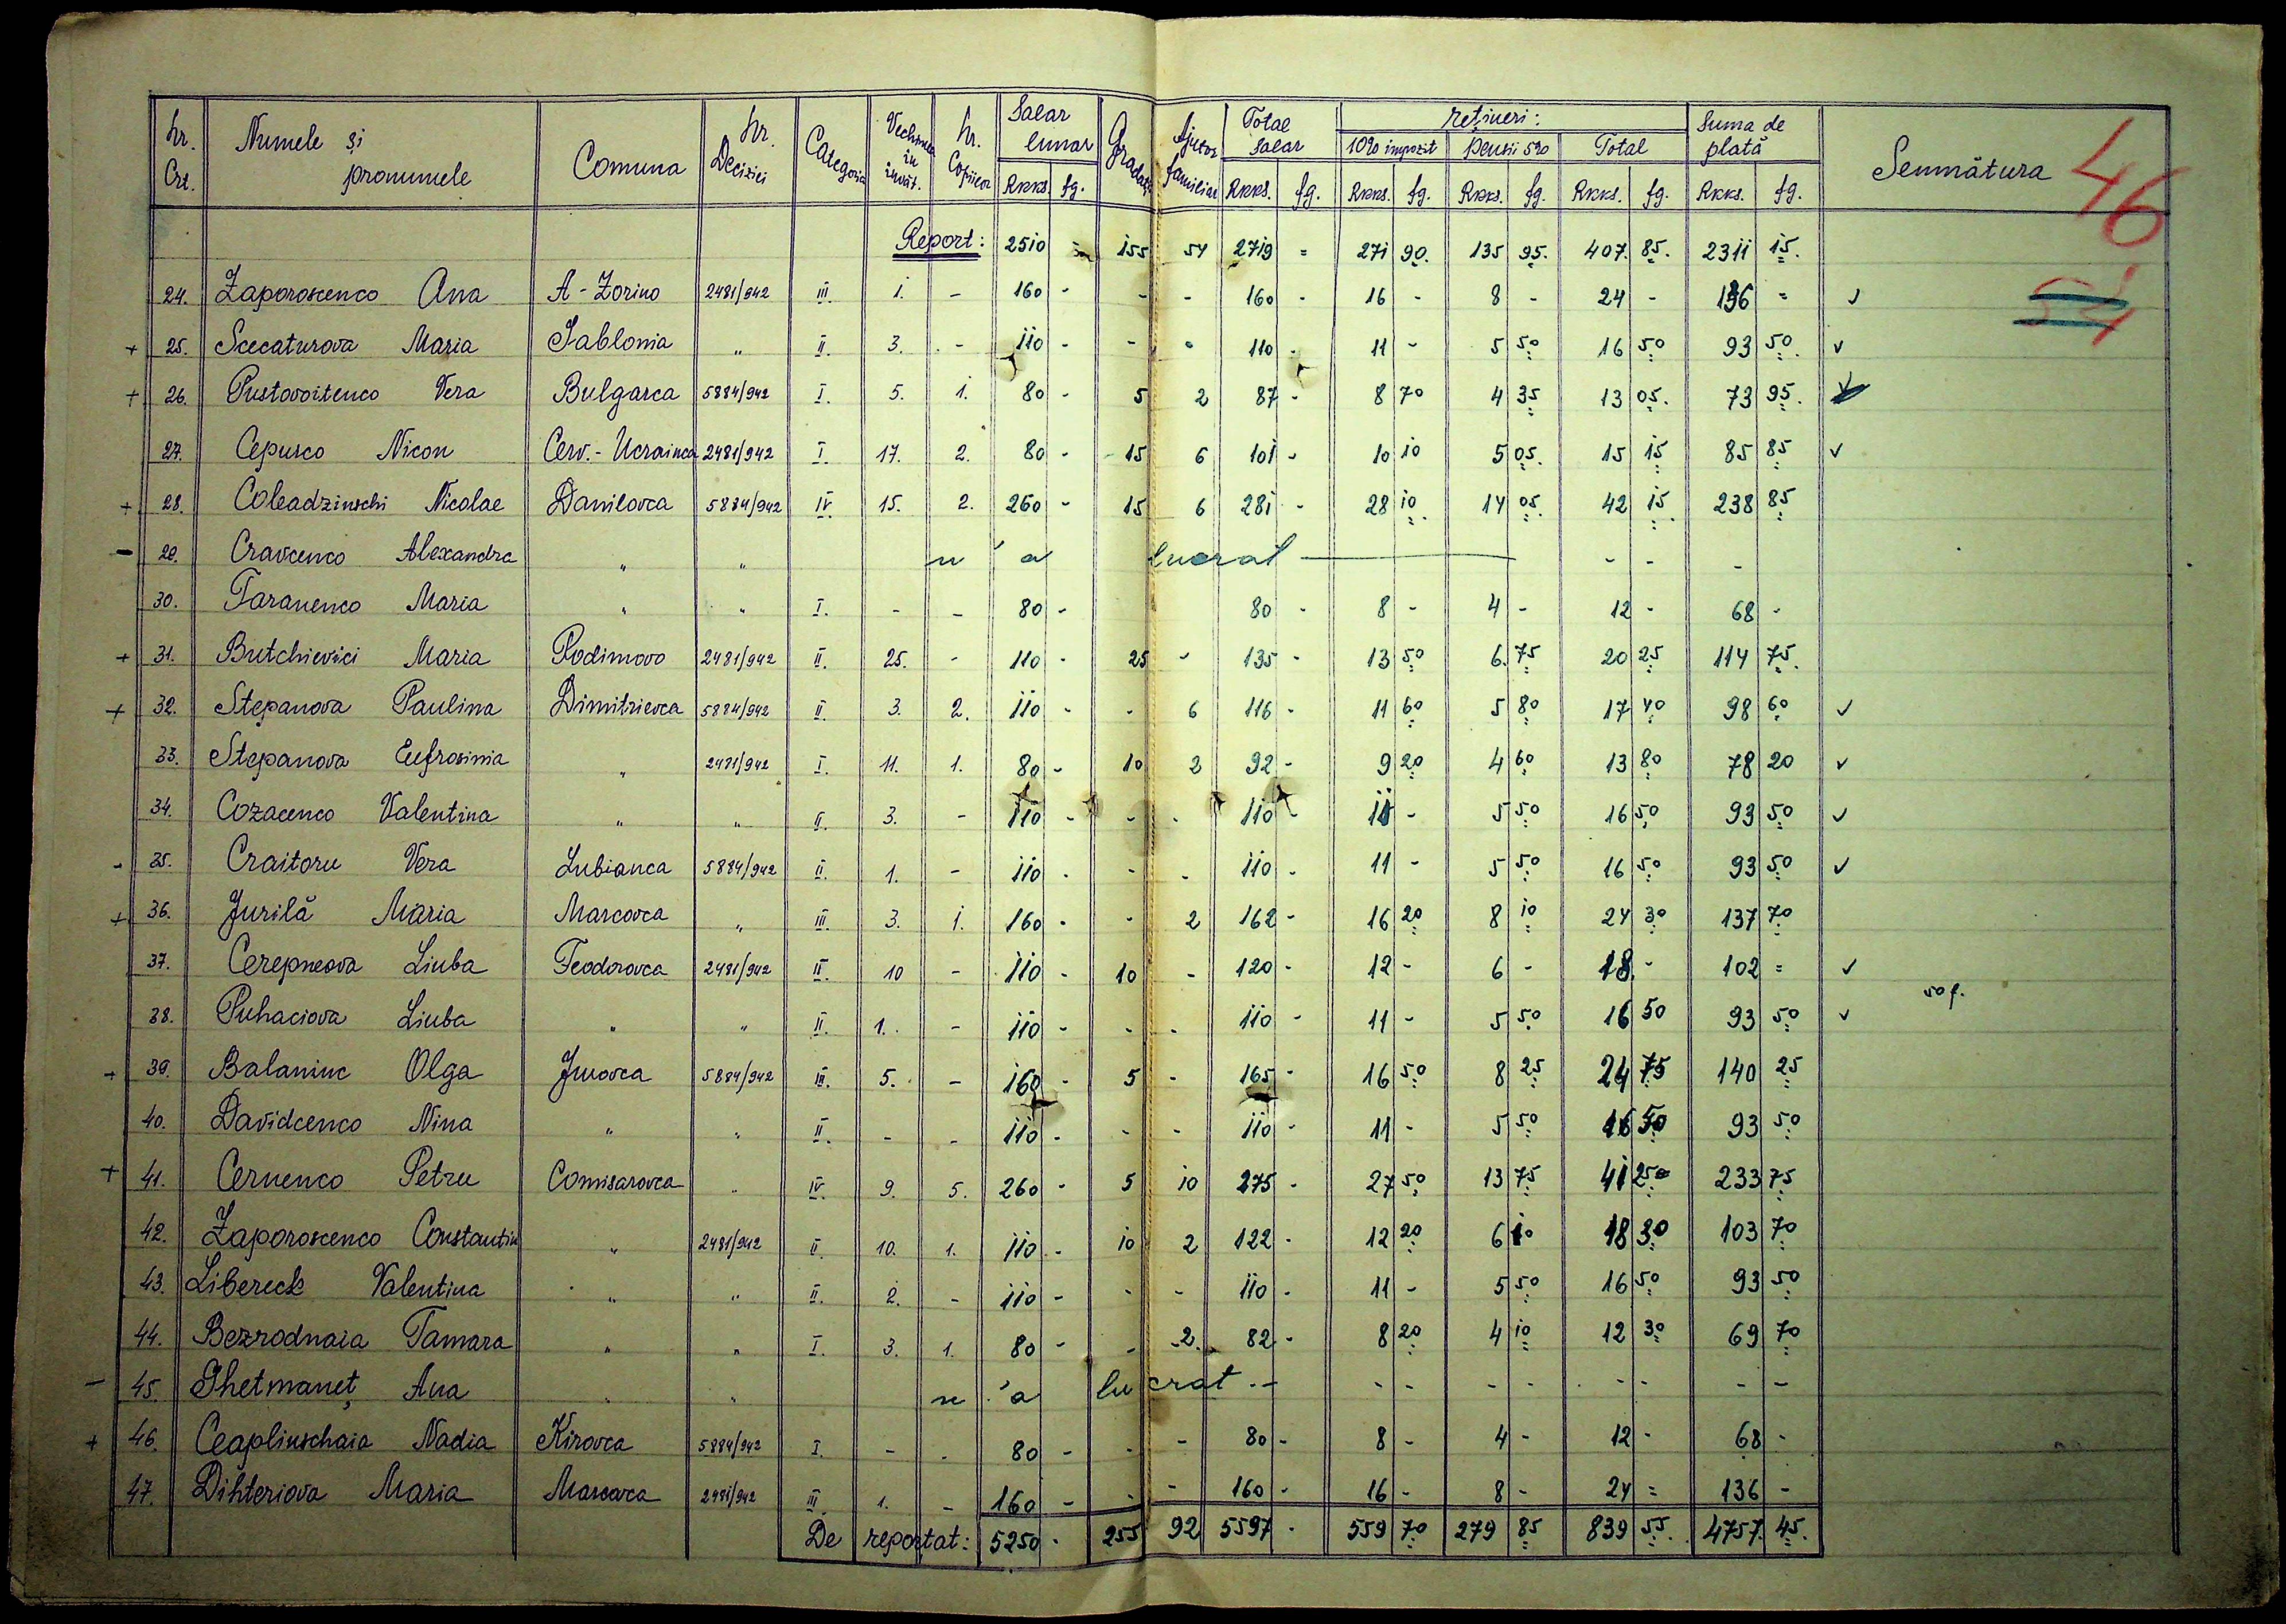 Nr. Crt. Numele și pronumele Comuna Nr. Deciziei Categoria Vechimea in învăt. Nr. Copiilor Salar lunar Gradații Ajutor familiar Total Salar rețineri: Suma de plată Semnătura 46
10% impozit Pensii 5% Total
RKKS. fg. RKKS. fg. RKKS. fg. RKKS. fg. RKKS. fg. RKKS. fg.
Report: 2510 = 155 54 2719 = 271 90. 135 95. 407. 85. 2311 15.
24. Zaporoscenco Ana A-Zorino 2481/942 III. 1. - 160 - - - 160 - 16 - 8 - 24 - 136 = ✓
+ 25. Scecaturova Maria Iablonia „ II. 3. - 110 - - - 110 - 11 - 5 50 16 50 93 50. ✓
+ 26. Pustovoitenco Vera Bulgarca 5884/942 I. 5. 1. 80 - 5 2 87 - 8 70 4 35 13 05. 73 95. ✓
27. Cepurco Nicon Cerv.-Ucrainca 2481/942 I. 17. 2. 80 - 15 6 101 - 10 10 5 05. 15 15 85 85 ✓
+ 28. Coleadzinschi Nicolae Danilovca 5884/942 IV. 15. 2. 260 - 15 6 281 - 28 10. 14 05. 42 15. 238 85
- 29. Cravcenco Alexandra „ „ n'a lucrat - - -
30. Taranenco Maria „ „ I. - - 80 - 80 - 8 - 4 - 12 - 68 -
+ 31. Butchievici Maria Podimovo 2481/942 II. 25. - 110 - 25 - 135 - 13 50 6. 75 20 25 114 75.
+ 32. Stepanova Paulina Dimitrievca 5884/942 II. 3. 2. 110 - - 6 116 - 11 60 5 80 17 40 98 60 ✓
33. Stepanova Eufrosinia „ 2481/942 I. 11. 1. 80 - 10 2 92 - 9 20 4 60 13 80 78 20 ✓
34. Cozacenco Valentina „ „ II. 3. - 110 - - - 110 - 11 - 5 50 16 50 93 50 ✓
- 35. Craitoru Vera Lubianca 5884/942 II. 1. - 110 - - - 110 - 11 - 5 50 16 50 93 50 ✓
+ 36. Jurilă Maria Marcovca „ III. 3. 1. 160 - - 2 162 - 16 20 8 10 24 30 137 70
37. Cerepneova Liuba Feodorovca 2481/942 II. 10 - 110 - 10 - 120 - 12 - 6 - 18. - 102 = ✓
50 f.
38. Puhaciova Liuba „ „ II. 1. - 110 - - - 110 - 11 - 5 50 16 50 93 50 ✓
+ 39. Balaninc Olga Jmovca 5884/942 III. 5. - 160 - 5 - 165 - 16 50 8 25 24 75 140 25
40. Davidcenco Nina „ „ II. - - 110 - - - 110 - 11 - 5 50 16 50 93 50
+ 41. Cernenco Petru Comisarovca „ IV. 9. 5. 260 - 5 10 275 - 27 50 13 75 41 25 233 75
42. Zaporoscenco Constantin „ 2481/942 II. 10. 1. 110 - 10 2 122 - 12 20 6 10 18 30 103 70
43. Libereck Valentina „ „ II. 2. - 110 - - - 110 - 11 - 5 50 16 50 93 50
44. Bezrodnaia Tamara „ „ I. 3. 1. 80 - - 2. 82 - 8 20 4 10 12 30 69 70
- 45. Ghetmaneț Ana „ „ n'a lucrat - - - - - - - - -
+ 46. Ceaplinschaia Nadia Kirovca 5884/942 I. - - 80 - - - 80 - 8 - 4 - 12 - 68 -
47. Dihteriova Maria Marcovca 2481/942 III. 1. - 160 - - - 160 - 16 - 8 - 24 = 136 -
De reportat: 5250 - 255 92 5597 - 559 70 279 85 839 55. 4757. 45.